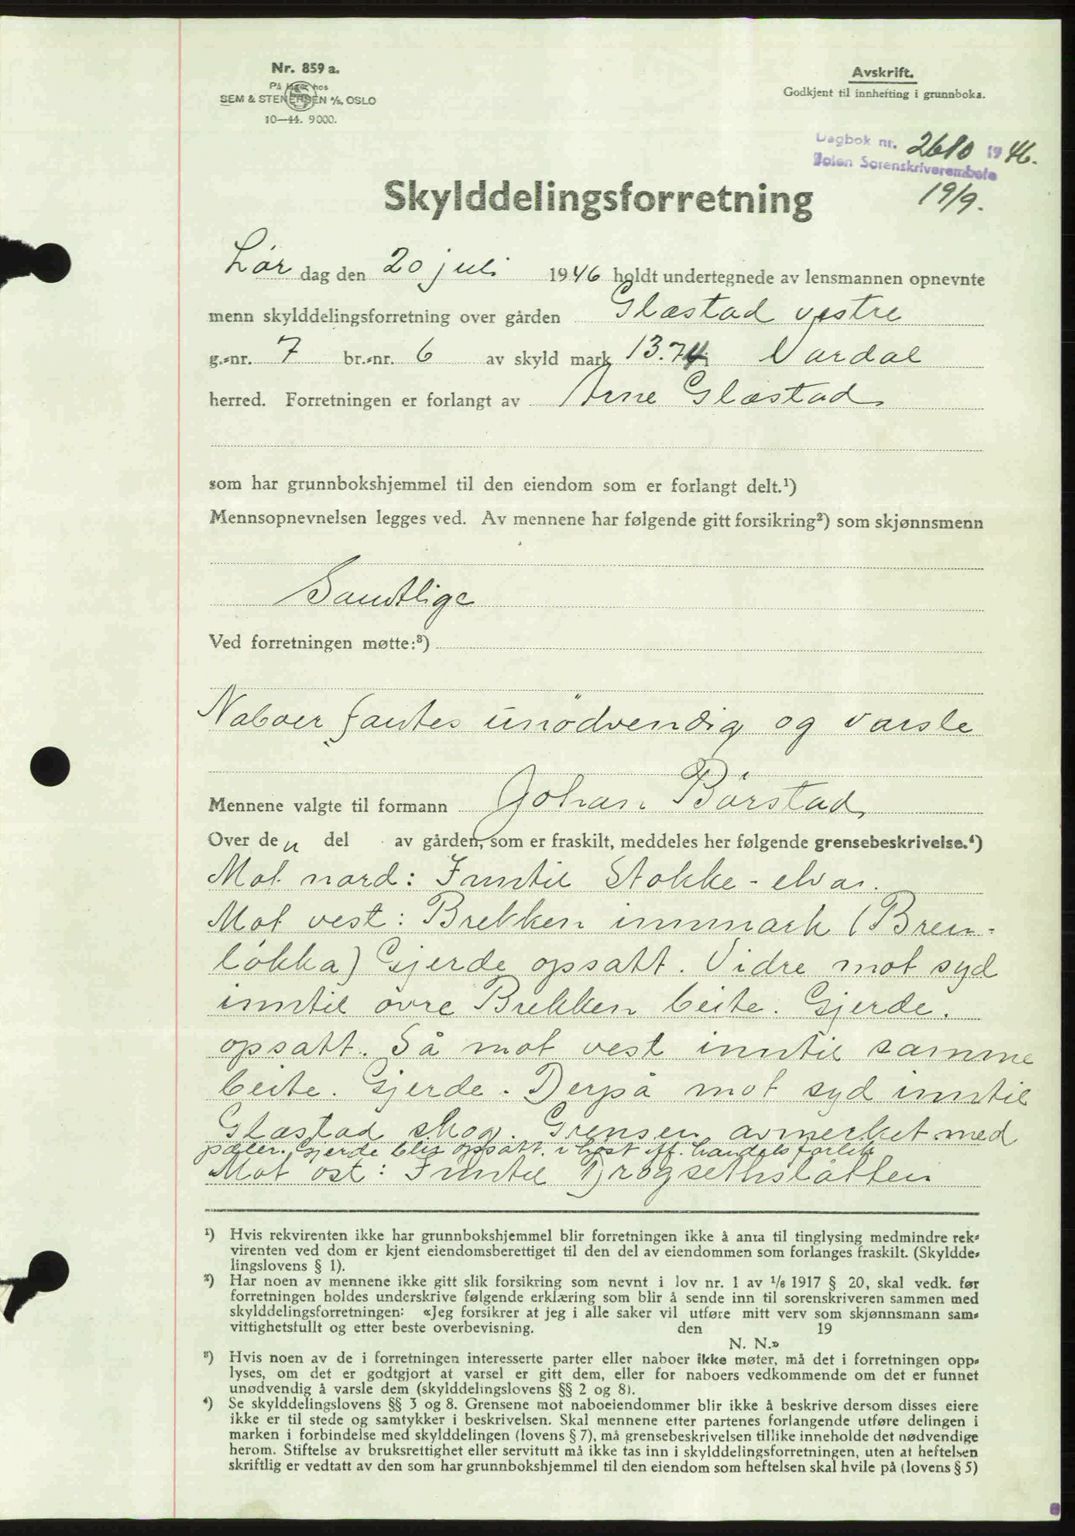 Nr. 859 a.
På lager hos
SEM & STENERSEN A/S, OSLO
10—44. 9000.
Avskrift.
Godkjent til innhefting i grunnboka.
Dagbok nr. 2610 1946.
Toten Sorenskriverembete
19/9.
Skylddelingsforretning
Lør dag den 20 juli 1946 holdt undertegnede av lensmannen opnevnte
menn skylddelingsforretning over gården Glæstad vestre
g.-nr. 7 br.-nr. 6 av skyld mark 13.74 i Vardal
herred. Forretningen er forlangt av Arne Glæstad
som har grunnbokshjemmel til den eiendom som er forlangt delt.¹)
Mennsopnevnelsen legges ved. Av mennene har følgende gitt forsikring²) som skjønnsmenn
Samtlige
Ved forretningen møtte:³)
Naboer fantes unødvendig og varsle
Mennene valgte til formann Johan Bårstad
Over den del av gården, som er fraskilt, meddeles her følgende grensebeskrivelse.⁴)
Mot nord: Inntil Stokke-elva.
Mot vest: Brekken innmark (Bren-
løkka) Gjerde opsatt. Vidre mot syd
inntil øvre Brekken beite. Gjerde.
opsatt. Så mot vest inntil samme
beite. Gjerde. Derpå mot syd inntil
Glæstad skog. Grensen avmerket med
pæler. Gjerde blir opsatt i høst iflf. handelsforlik
Mot øst: Inntil Drogsethslåtten
¹) Hvis rekvirenten ikke har grunnbokshjemmel blir forretningen ikke å anta til tinglysing medmindre rek-
virenten ved dom er kjent eiendomsberettiget til den del av eiendommen som forlanges fraskilt. (Skyldde-
lingslovens § 1).
²) Har noen av mennene ikke gitt slik forsikring som nevnt i lov nr. 1 av 1/6 1917 § 20, skal vedk. før
forretningen holdes underskrive følgende erklæring som blir å sende inn til sorenskriveren sammen med
skylddelingsforretningen: «Jeg forsikrer at jeg i alle saker vil utføre mitt verv som skjønnsmann sam-
vittighetsfullt og etter beste overbevisning. den 19
N. N.»
³) Hvis noen av de i forretningen interesserte parter eller naboer ikke møter, må det i forretningen opp-
lyses, om det er godtgjort at varsel er gitt dem, eller for naboers vedkommende om det er funnet
unødvendig å varsle dem (skylddelingslovens §§ 2 og 8).
⁴) Se skylddelingslovens §§ 3 og 8. Grensene mot naboeiendommer blir ikke å beskrive dersom disses eiere
ikke er til stede og samtykker i beskrivelsen. Skal mennene etter partenes forlangende utføre delingen i
marken i forbindelse med skylddelingen (lovens § 7), må grensebeskrivelsen tillike inneholde det nødvendige
herom. Stiftelse av bruksrettighet eller servitutt må ikke tas inn i skylddelingsforretningen, uten at heftelsen
skriftlig er vedtatt av den som har grunnbokshjemmel til den eiendom som heftelsen skal hvile på (lovens § 5)